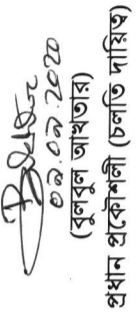 ০৯.০৯.2020
(বুলবুল আখতার)
প্রধান প্রকৌশলী (চলতি দায়িত্ব)